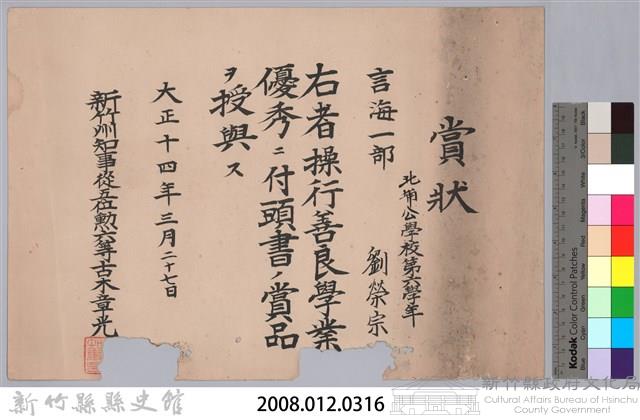 賞狀
北埔公學校第六學年
劉榮宗
言海一部
右者操行善良學業
優秀ニ付頭書ノ賞品
ヲ授與ス
大正十四年三月二十七日
新竹州知事從五位勳六等古木章光
Black
3/Color
White
Magenta
Red
Yellow
Green
Cyan
Blue
Kodak Color Control Patches
新竹縣縣史館
2008.012.0316
新竹縣政府文化局
Cultural Affairs Bureau of Hsinchu
County Government